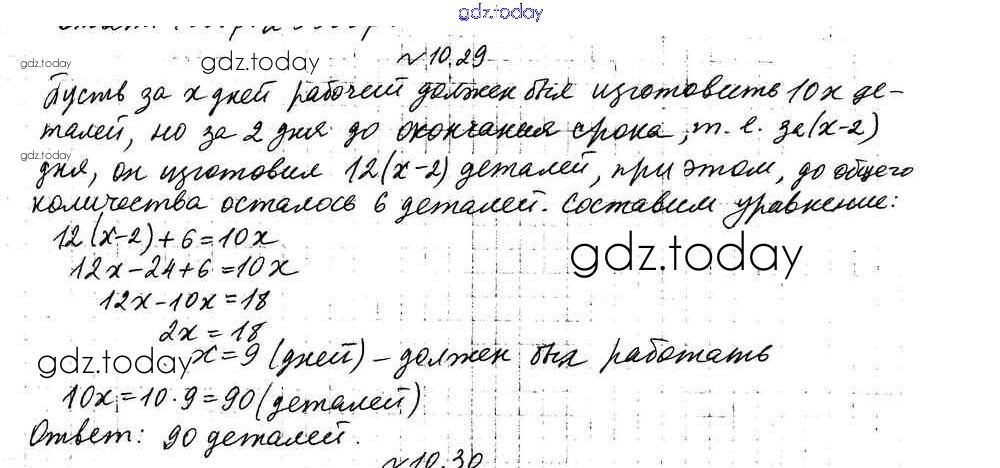 gdz.today
№10.29
gdz.today
gdz.today
Пусть за x дней рабочий должен был изготовить 10x де-
талей, но за 2 дня до окончания срока, т. е. за (x-2)
gdz.today
дня, он изготовил 12(x-2) деталей, при этом, до общего
количества осталось 6 деталей. Составим уравнение:
12(x-2)+6=10x
gdz.today
12x-24+6=10x
12x-10x=18
2x=18
gdz.today
x=9 (дней) - должен был работать
10x=10·9=90(деталей)
Ответ: 90 деталей.
№10.30